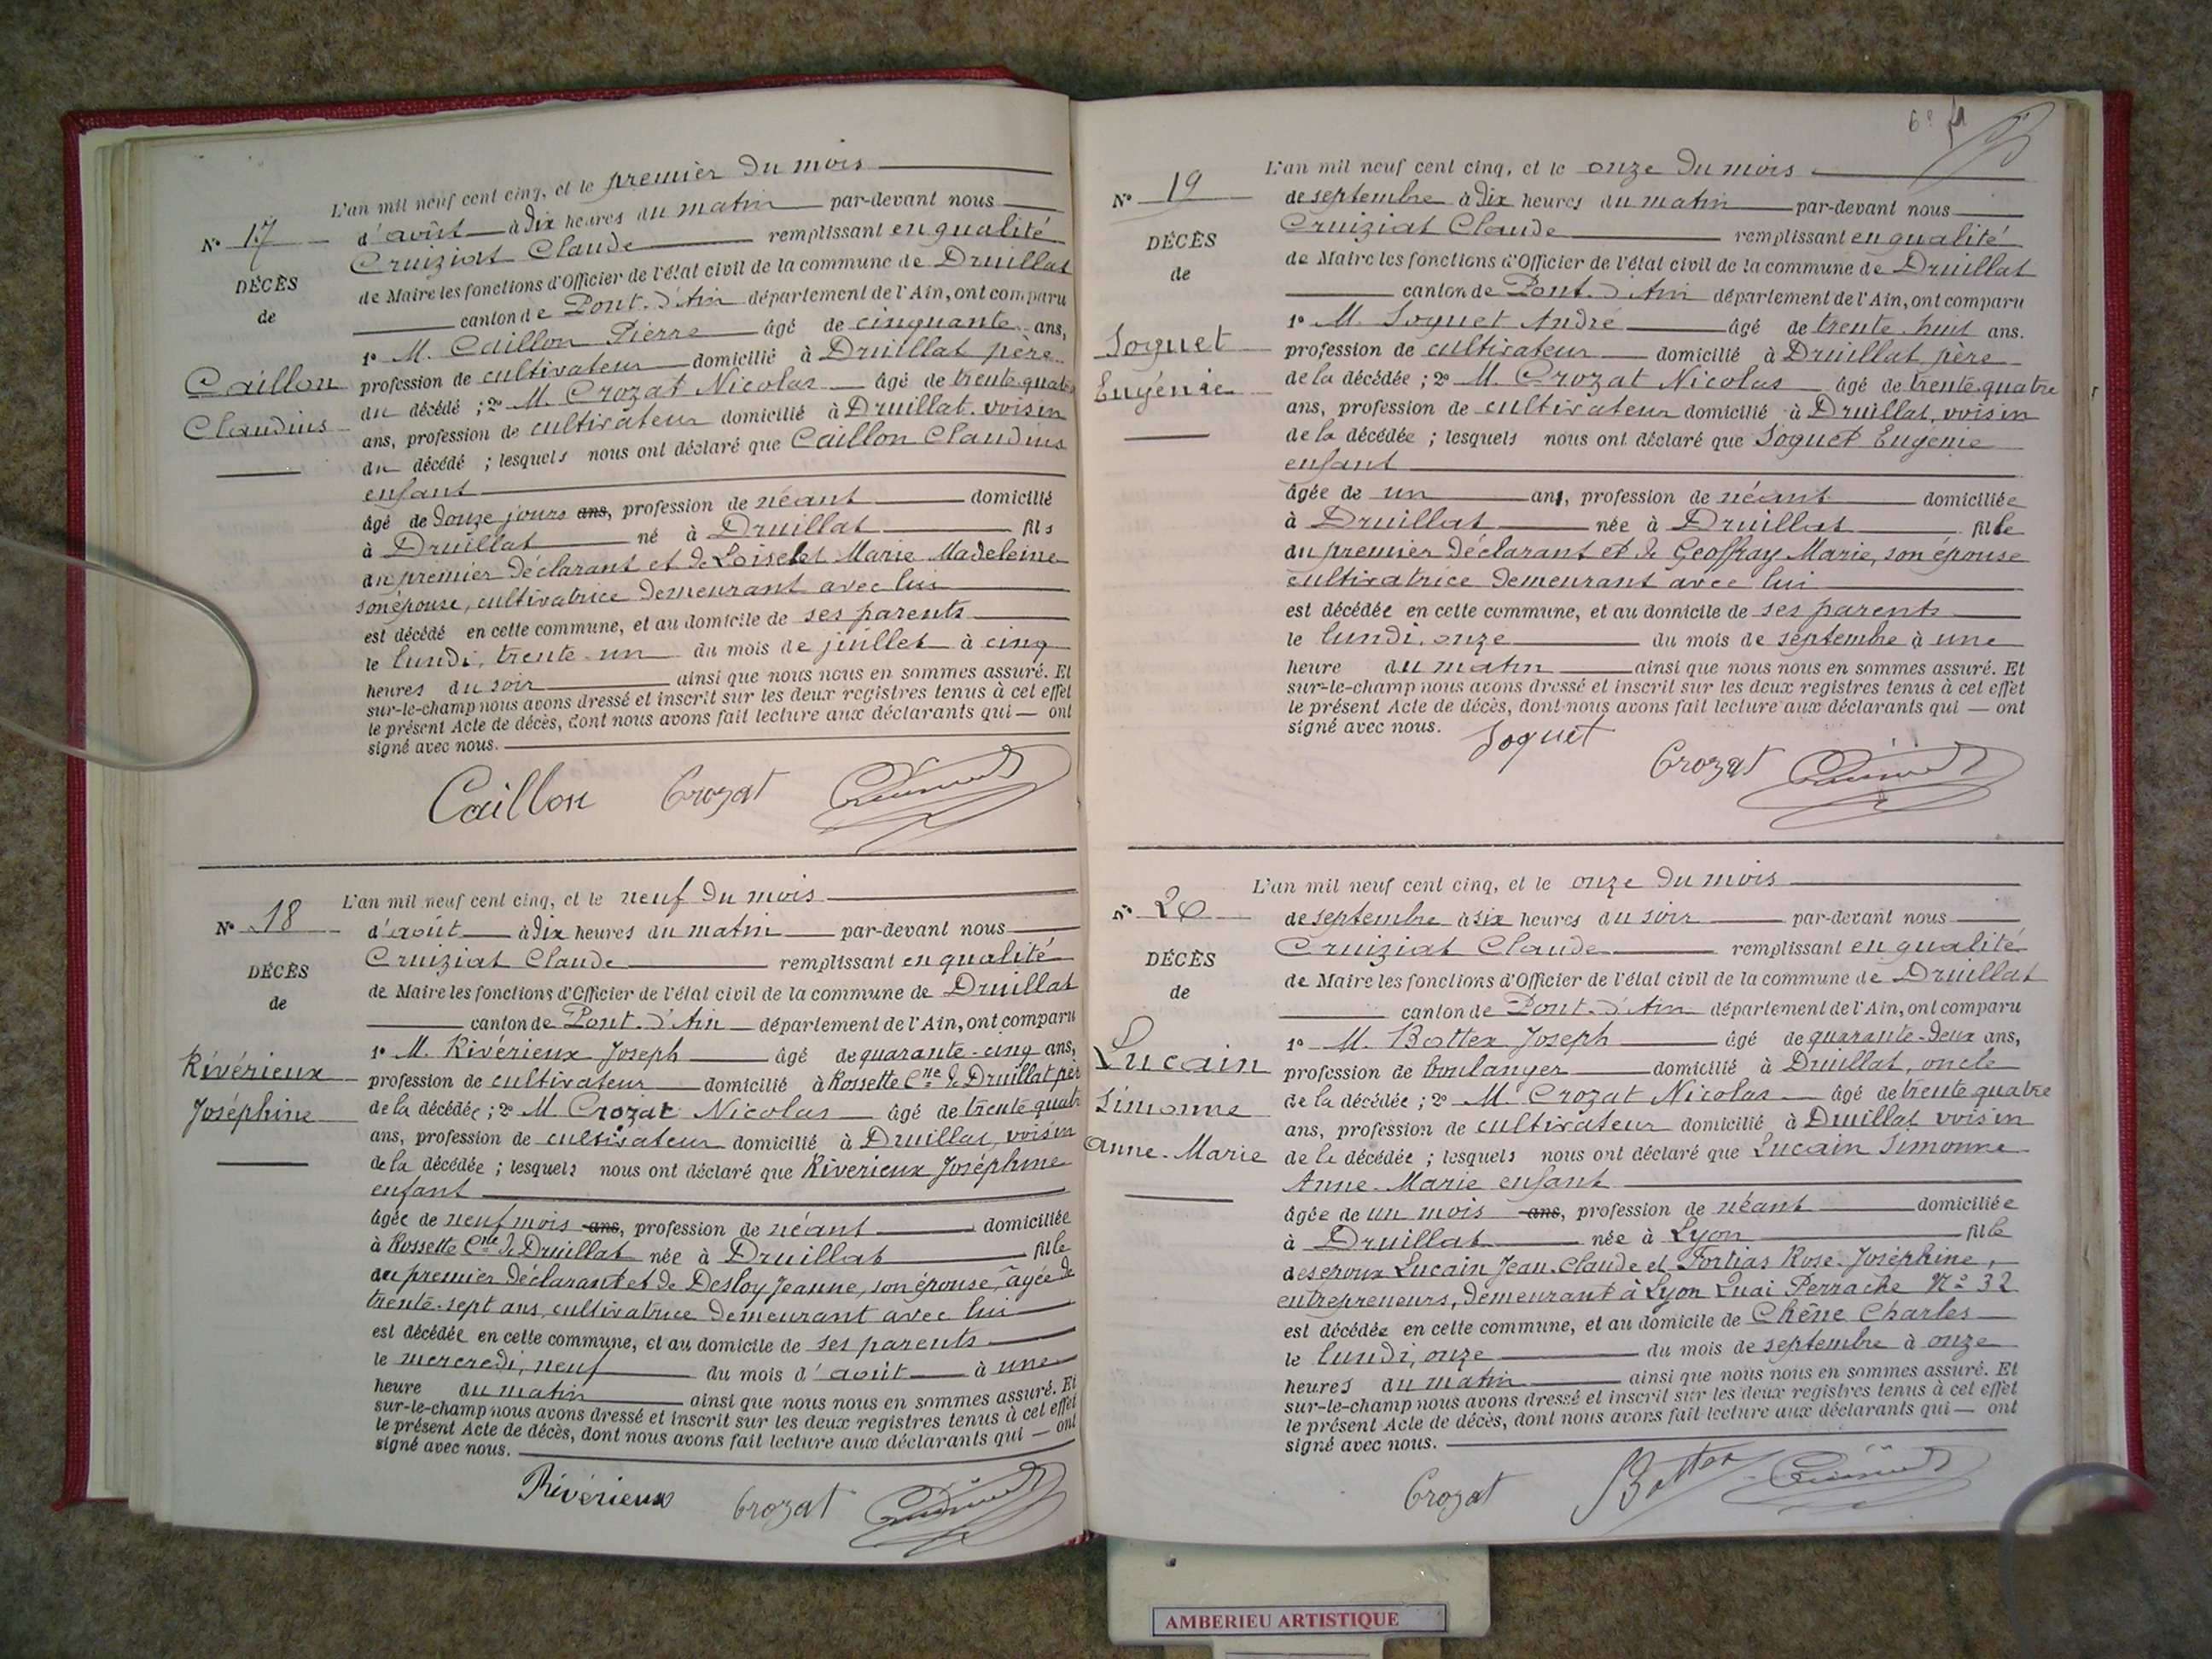 L'an mil neuf cent cinq, et le premier du mois
N° 17
d'août à dix heures du matin par-devant nous
Cruiziat Claude remplissant en qualité
DÉCÈS
de Maire les fonctions d'Officier de l'état civil de la commune de Druillat
de
canton de Pont-d'Ain département de l'Ain, ont comparu
1° M. Caillon Pierre âgé de cinquante ans,
Caillon
profession de cultivateur domicilié à Druillat père
Claudius
du décédé ; 2° M. Crozat Nicolas âgé de trente quatre
ans, profession de cultivateur domicilié à Druillat voisin
du décédé ; lesquels nous ont déclaré que Caillon Claudius
enfant
âgé de douze jours ans, profession de néant domicilié
à Druillat né à Druillat fils
du premier déclarant et de Loiselet Marie Madeleine
son épouse, cultivatrice demeurant avec lui
est décédé en cette commune, et au domicile de ses parents
le lundi, trente-un du mois de juillet à cinq
heures du soir ainsi que nous nous en sommes assuré. Et
sur-le-champ nous avons dressé et inscrit sur les deux registres tenus à cet effet
le présent Acte de décès, dont nous avons fait lecture aux déclarants qui — ont
signé avec nous.
Caillon Crozat
L'an mil neuf cent cinq, et le neuf du mois
N° 18
d'août à dix heures du matin par-devant nous
Cruiziat Claude remplissant en qualité
DÉCÈS
de Maire les fonctions d'Officier de l'état civil de la commune de Druillat
de
canton de Pont-d'Ain département de l'Ain, ont comparu
1° M. Rivérieux Joseph âgé de quarante-cinq ans,
Rivérieux
profession de cultivateur domicilié à Rossette Cne de Druillat père
Joséphine
de la décédée ; 2° M. Crozat Nicolas âgé de trente quatre
ans, profession de cultivateur domicilié à Druillat, voisin
de la décédée ; lesquels nous ont déclaré que Rivérieux Joséphine
enfant
âgée de neuf mois ans, profession de néant domiciliée
à Rossette Cne de Druillat née à Druillat fille
du premier déclarant et de Desloy Jeanne, son épouse, âgée de
trente-sept ans, cultivatrice demeurant avec lui
est décédée en cette commune, et au domicile de ses parents
le mercredi, neuf du mois d'août à une
heure du matin ainsi que nous nous en sommes assuré. Et
sur-le-champ nous avons dressé et inscrit sur les deux registres tenus à cet effet
le présent Acte de décès, dont nous avons fait lecture aux déclarants qui — ont
signé avec nous.
Rivérieux Crozat
L'an mil neuf cent cinq, et le onze du mois
N° 19
de septembre à dix heures du matin par-devant nous
Cruiziat Claude remplissant en qualité
DÉCÈS
de Maire les fonctions d'Officier de l'état civil de la commune de Druillat
de
canton de Pont-d'Ain département de l'Ain, ont comparu
1° M. Soquet André âgé de trente-huit ans.
Soquet
profession de cultivateur domicilié à Druillat père
Eugénie
de la décédée ; 2° M. Crozat Nicolas âgé de trente-quatre
ans, profession de cultivateur domicilié à Druillat, voisin
de la décédée ; lesquels nous ont déclaré que Soquet Eugénie
enfant
âgée de un an, profession de néant domiciliée
à Druillat née à Druillat fille
du premier déclarant et de Geoffray Marie, son épouse
cultivatrice demeurant avec lui
est décédée en cette commune, et au domicile de ses parents
le lundi, onze du mois de septembre à une
heure du matin ainsi que nous nous en sommes assuré. Et
sur-le-champ nous avons dressé et inscrit sur les deux registres tenus à cet effet
le présent Acte de décès, dont nous avons fait lecture aux déclarants qui — ont
signé avec nous.
Soquet
Crozat
L'an mil neuf cent cinq, et le onze du mois
N° 20
de septembre à six heures du soir par-devant nous
Cruiziat Claude remplissant en qualité
DÉCÈS
de Maire les fonctions d'Officier de l'état civil de la commune de Druillat
de
canton de Pont-d'Ain département de l'Ain, ont comparu
1° M. Bottex Joseph âgé de quarante-deux ans,
Lucain
profession de boulanger domicilié à Druillat, oncle
Simonne
de la décédée ; 2° M. Crozat Nicolas âgé de trente quatre
ans, profession de cultivateur domicilié à Druillat voisin
Anne-Marie
de la décédée ; lesquels nous ont déclaré que Lucain Simonne
Anne-Marie enfant
âgée de un mois ans, profession de néant domiciliée
à Druillat née à Lyon fille
des époux Lucain Jean-Claude et Fortias Rose-Joséphine,
entrepreneurs, demeurant à Lyon Quai Perrache N° 32
est décédée en cette commune, et au domicile de Chêne Charles
le lundi, onze du mois de septembre à onze
heures du matin ainsi que nous nous en sommes assuré. Et
sur-le-champ nous avons dressé et inscrit sur les deux registres tenus à cet effet
le présent Acte de décès, dont nous avons fait lecture aux déclarants qui — ont
signé avec nous.
Crozat Bottex
AMBERIEU ARTISTIQUE